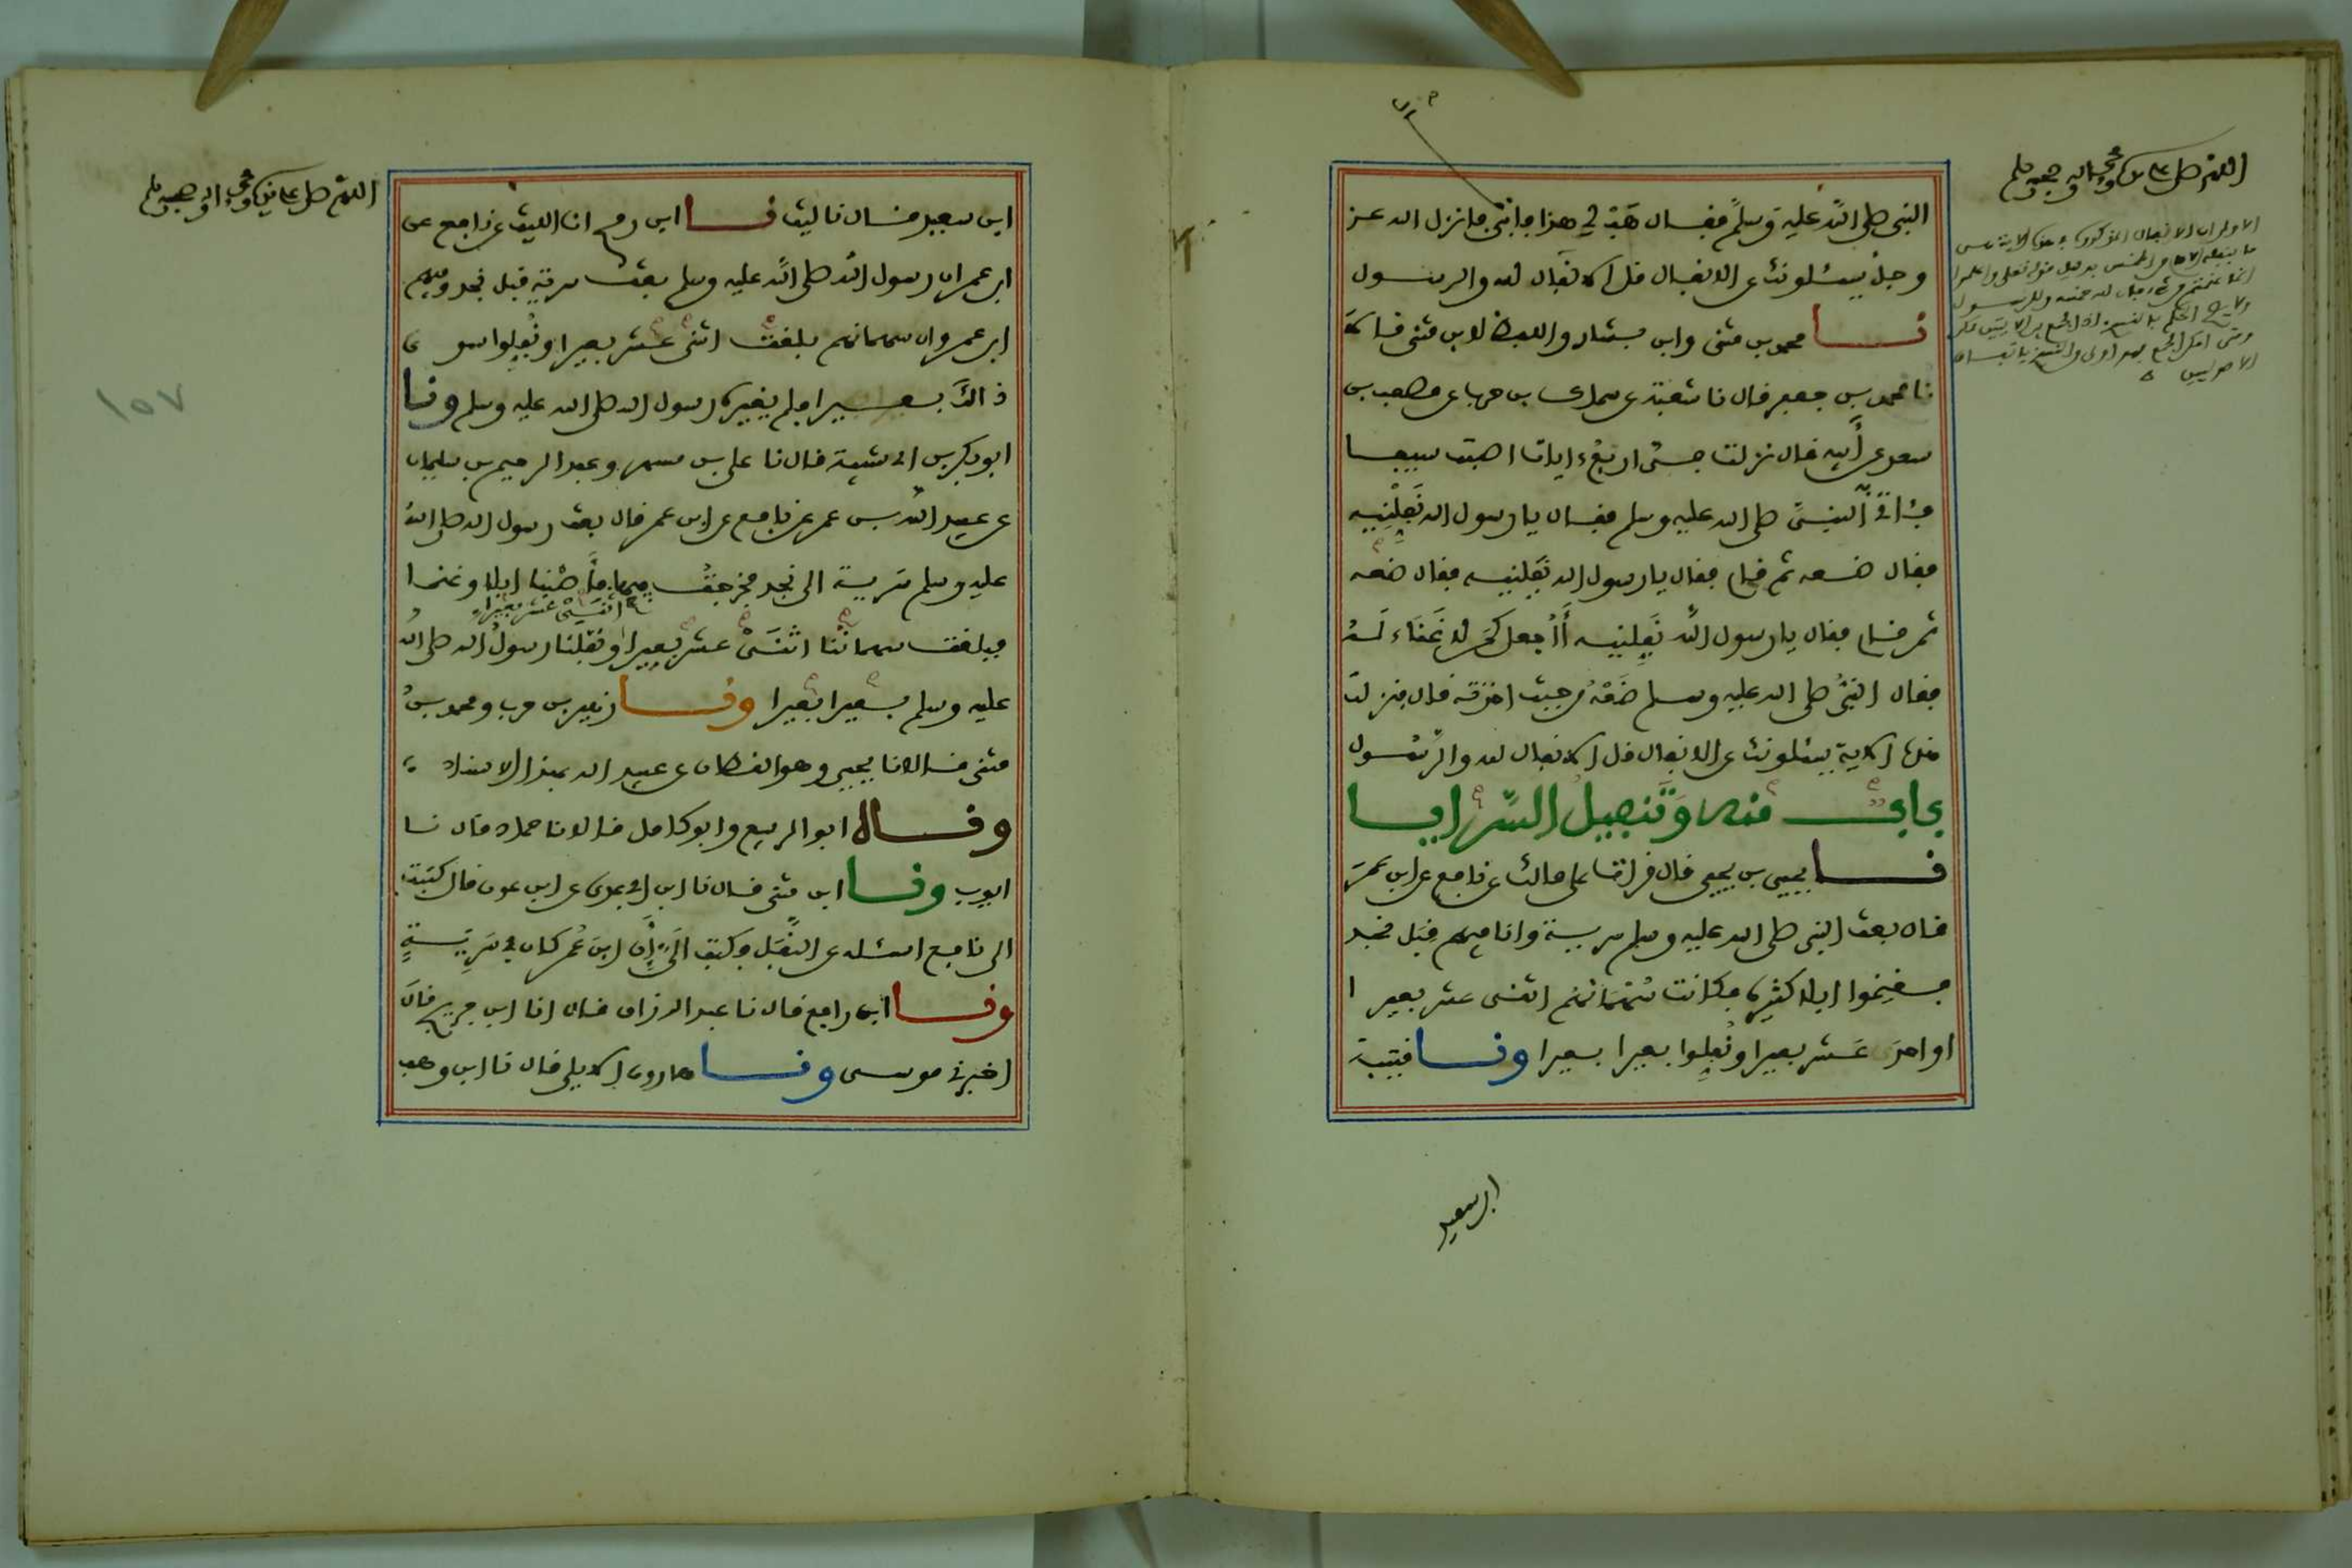 اللهم صل على سيدنا محمد وآله وصحبه وسلم
النبي صلى الله عليه وسلم فقال هب لي هذا فابى فانزل الله عز
وجل يسئلونك عن الانفال قل الانفال لله والرسول
نا محمد بن مثنى وابن بشار واللفظ لابن مثنى قالا
نا محمد بن جعفر قال نا شعبة عن سماك بن حرب عن مصعب بن
سعد عن أبيه قال نزلت في اربع ءايات اصبت سيفا
فأتى النبي صلى الله عليه وسلم فقال يا رسول الله نفلنيه
فقال ضعه ثم قام فقال يا رسول الله نفلنيه فقال ضعه
ثم قام فقال يا رسول الله نفلنيه أأجعل كمن لا غناء له
فقال النبي صلى الله عليه وسلم ضعه من حيث اخذته قال فنزلت
هذه الاية يسئلونك عن الانفال قل الانفال لله والرسول
باب منه وتنفيل السرايا
نا يحيى بن يحيى قال قرات على مالك عن نافع عن ابن عمر
قال بعث النبي صلى الله عليه وسلم سرية وانا فيهم قبل نجد
فغنموا ابلا كثيرة فكانت سهمانهم اثنى عشر بعيرا
او احد عشر بعيرا ونفلوا بعيرا بعيرا ونا قتيبة
ابن سعيد
اللهم صل على سيدنا محمد وآله وصحبه وسلم
١٥٧
ابن سعيد قال نا ليث نا ابن رمح انا الليث عن نافع عن
ابن عمر ان رسول الله صلى الله عليه وسلم بعث سرية قبل نجد وفيهم
ابن عمر وان سهمانهم بلغت اثنى عشر بعيرا ونفلوا سوى
ذالك بعيرا فلم يغيره رسول الله صلى الله عليه وسلم ونا
ابو بكر بن ابي شيبة قال نا علي بن مسهر وعبد الرحيم بن سليمان
عن عبيد الله بن عمر عن نافع عن ابن عمر قال بعث رسول الله صلى الله
عليه وسلم سرية الى نجد فخرجت فيها فأصبنا ابلا وغنما
فبلغت سهماننا اثنى عشر بعيرا اثنى عشر بعيرا ونفلنا رسول الله صلى الله
عليه وسلم بعيرا بعيرا ونا زهير بن حرب ومحمد بن
مثنى قالا نا يحيى وهو القطان عن عبيد الله بهذا الاسناد
ونا ابو الربيع وابو كامل قالا نا حماد قال نا
ايوب ونا ابن مثنى قال نا ابن ابي عدي عن ابن عون قال كتبت
الى نافع اسئله عن النفل فكتب الي أن ابن عمر كان في سرية
ونا ابن رافع قال نا عبد الرزاق قال انا ابن جريج قال
اخبرني موسى ونا هارون الايلي قال نا ابن وهب